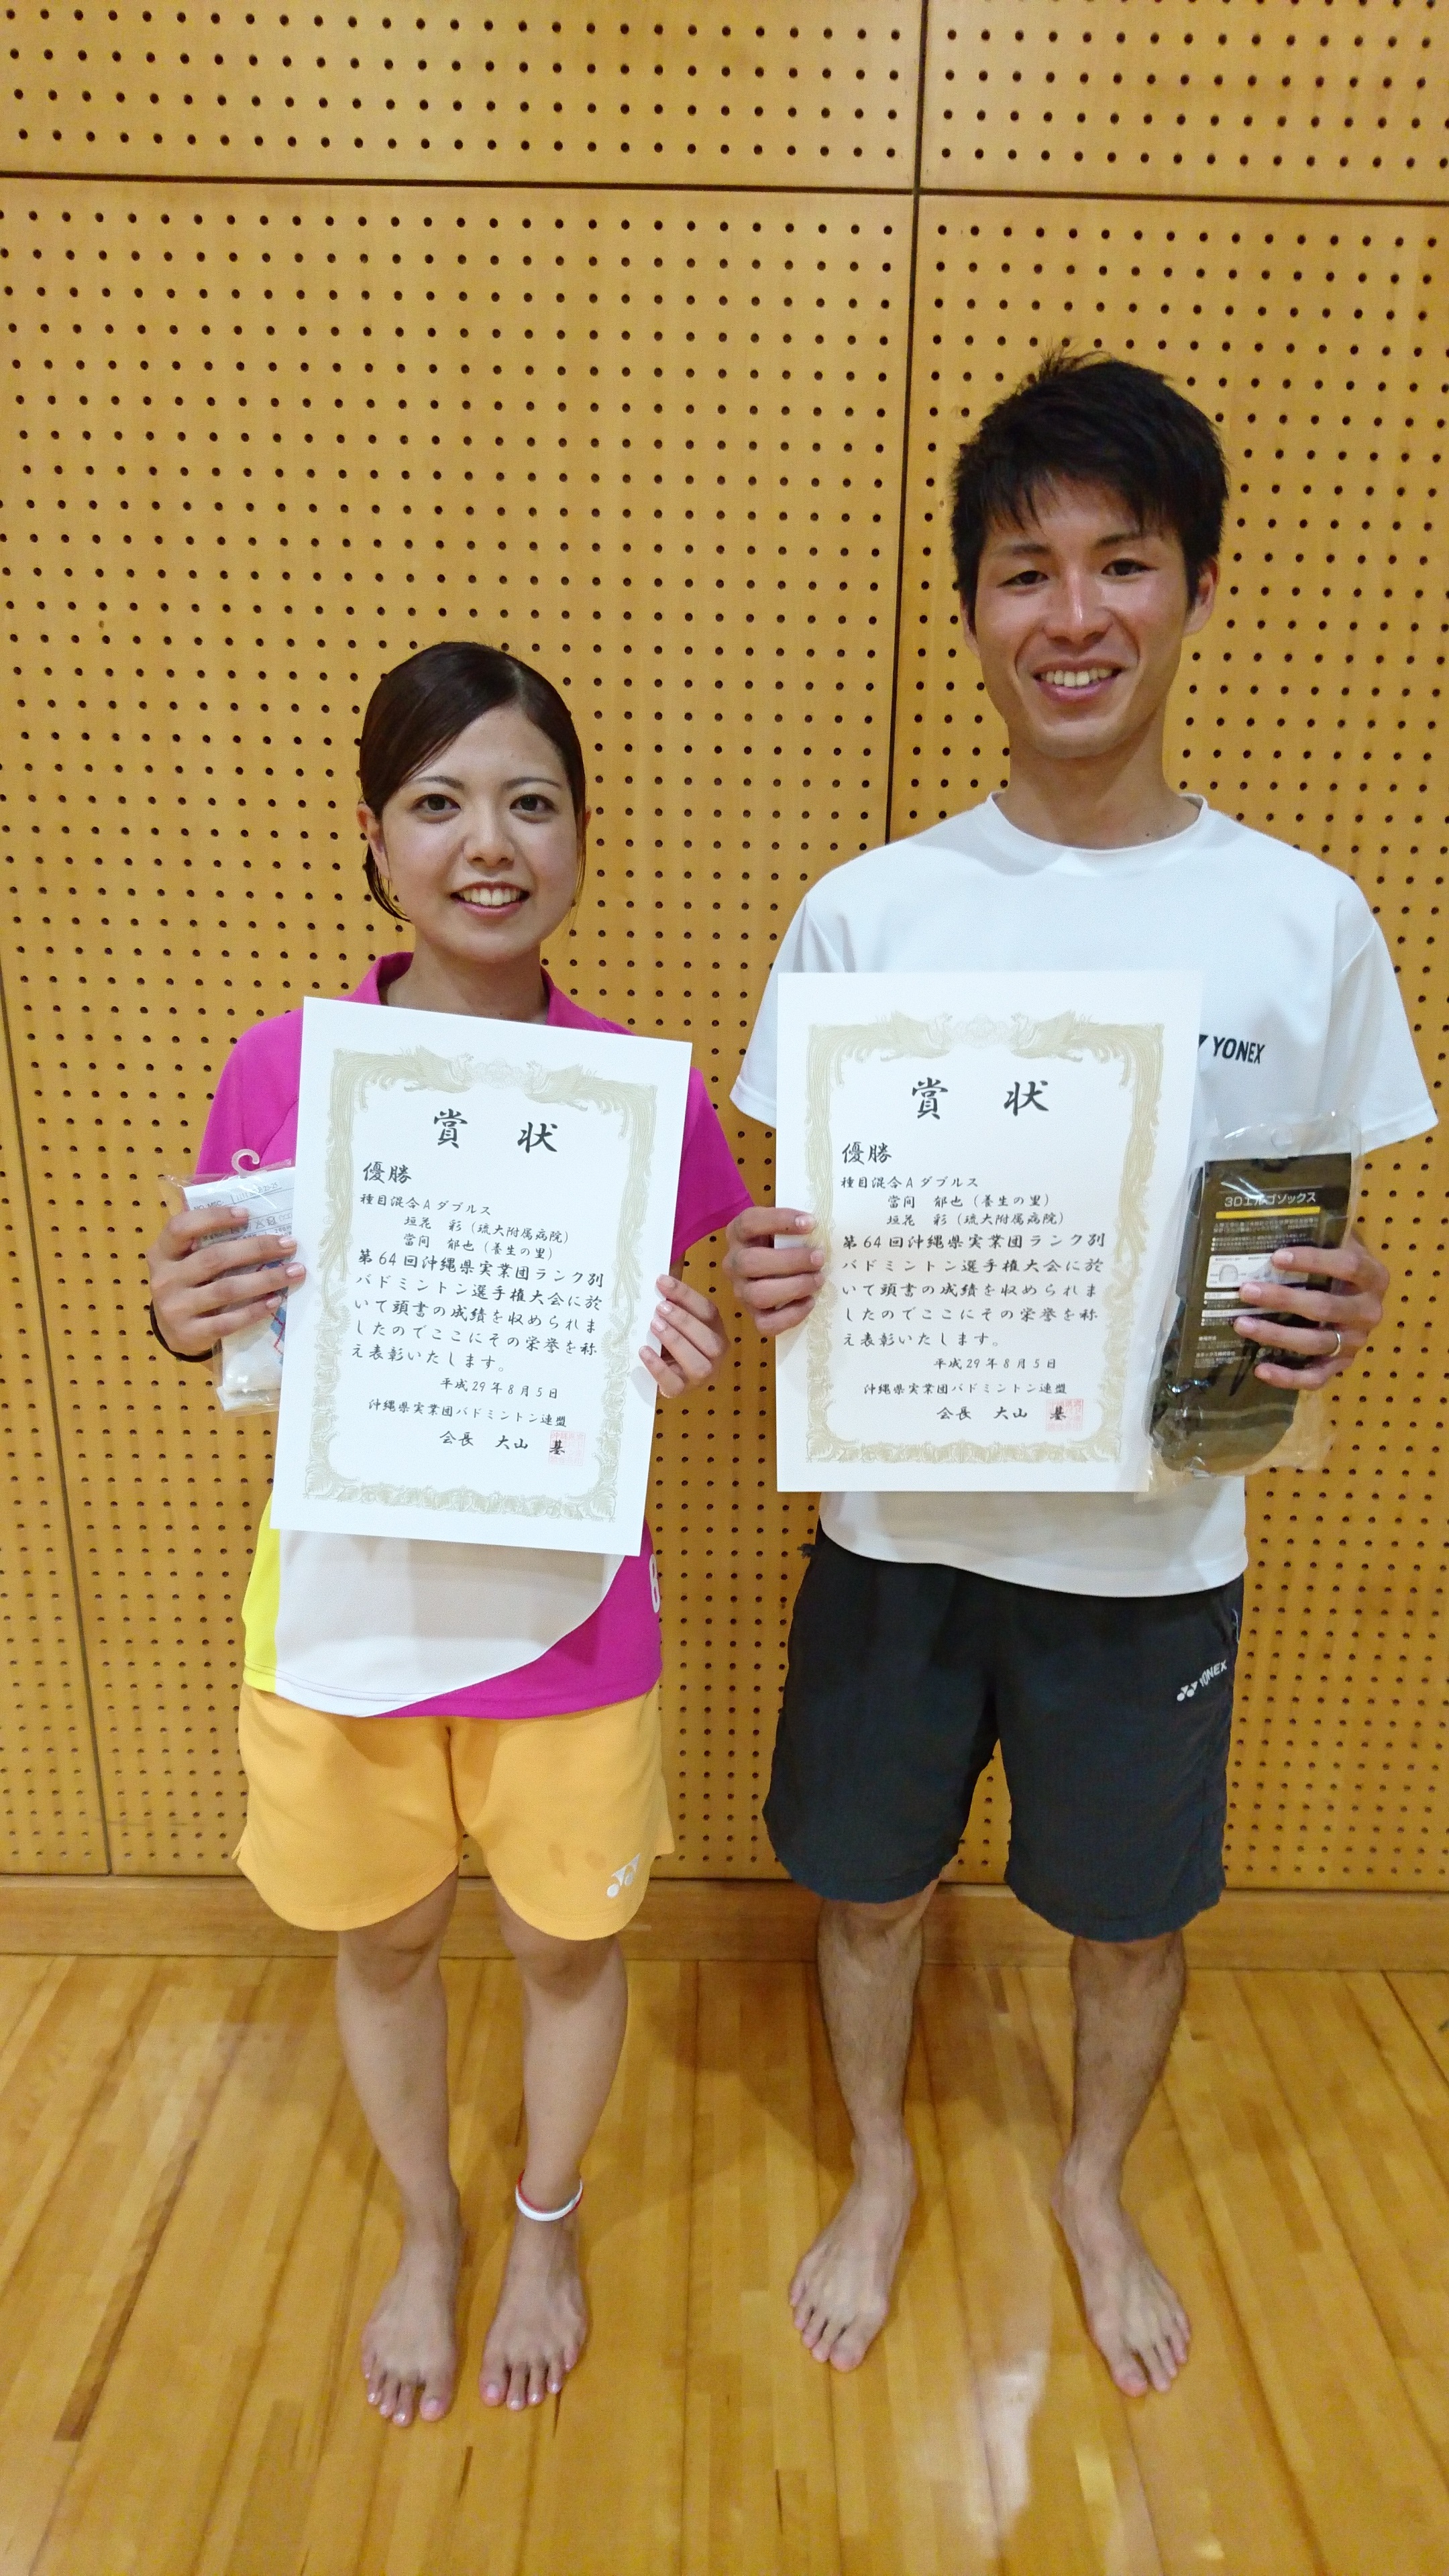 賞 状
優勝
種目混合Aダブルス
垣花 彩(琉大附属病院)
當间 郁也(養生の里)
第64回沖縄県実業団ランク別
バドミントン選手権大会に於
いて頭書の成績を収められま
したのでここにその栄誉を称
え表彰いたします。
平成29年8月5日
沖縄県実業団バドミントン連盟
会長 大山 基
賞 状
優勝
種目混合Aダブルス
當间 郁也(養生の里)
垣花 彩(琉大附属病院)
第64回沖縄県実業団ランク別
バドミントン選手権大会に於
いて頭書の成績を収められま
したのでここにその栄誉を称
え表彰いたします。
平成29年8月5日
沖縄県実業団バドミントン連盟
会長 大山 基
YONEX
3Dエルゴソックス
YONEX